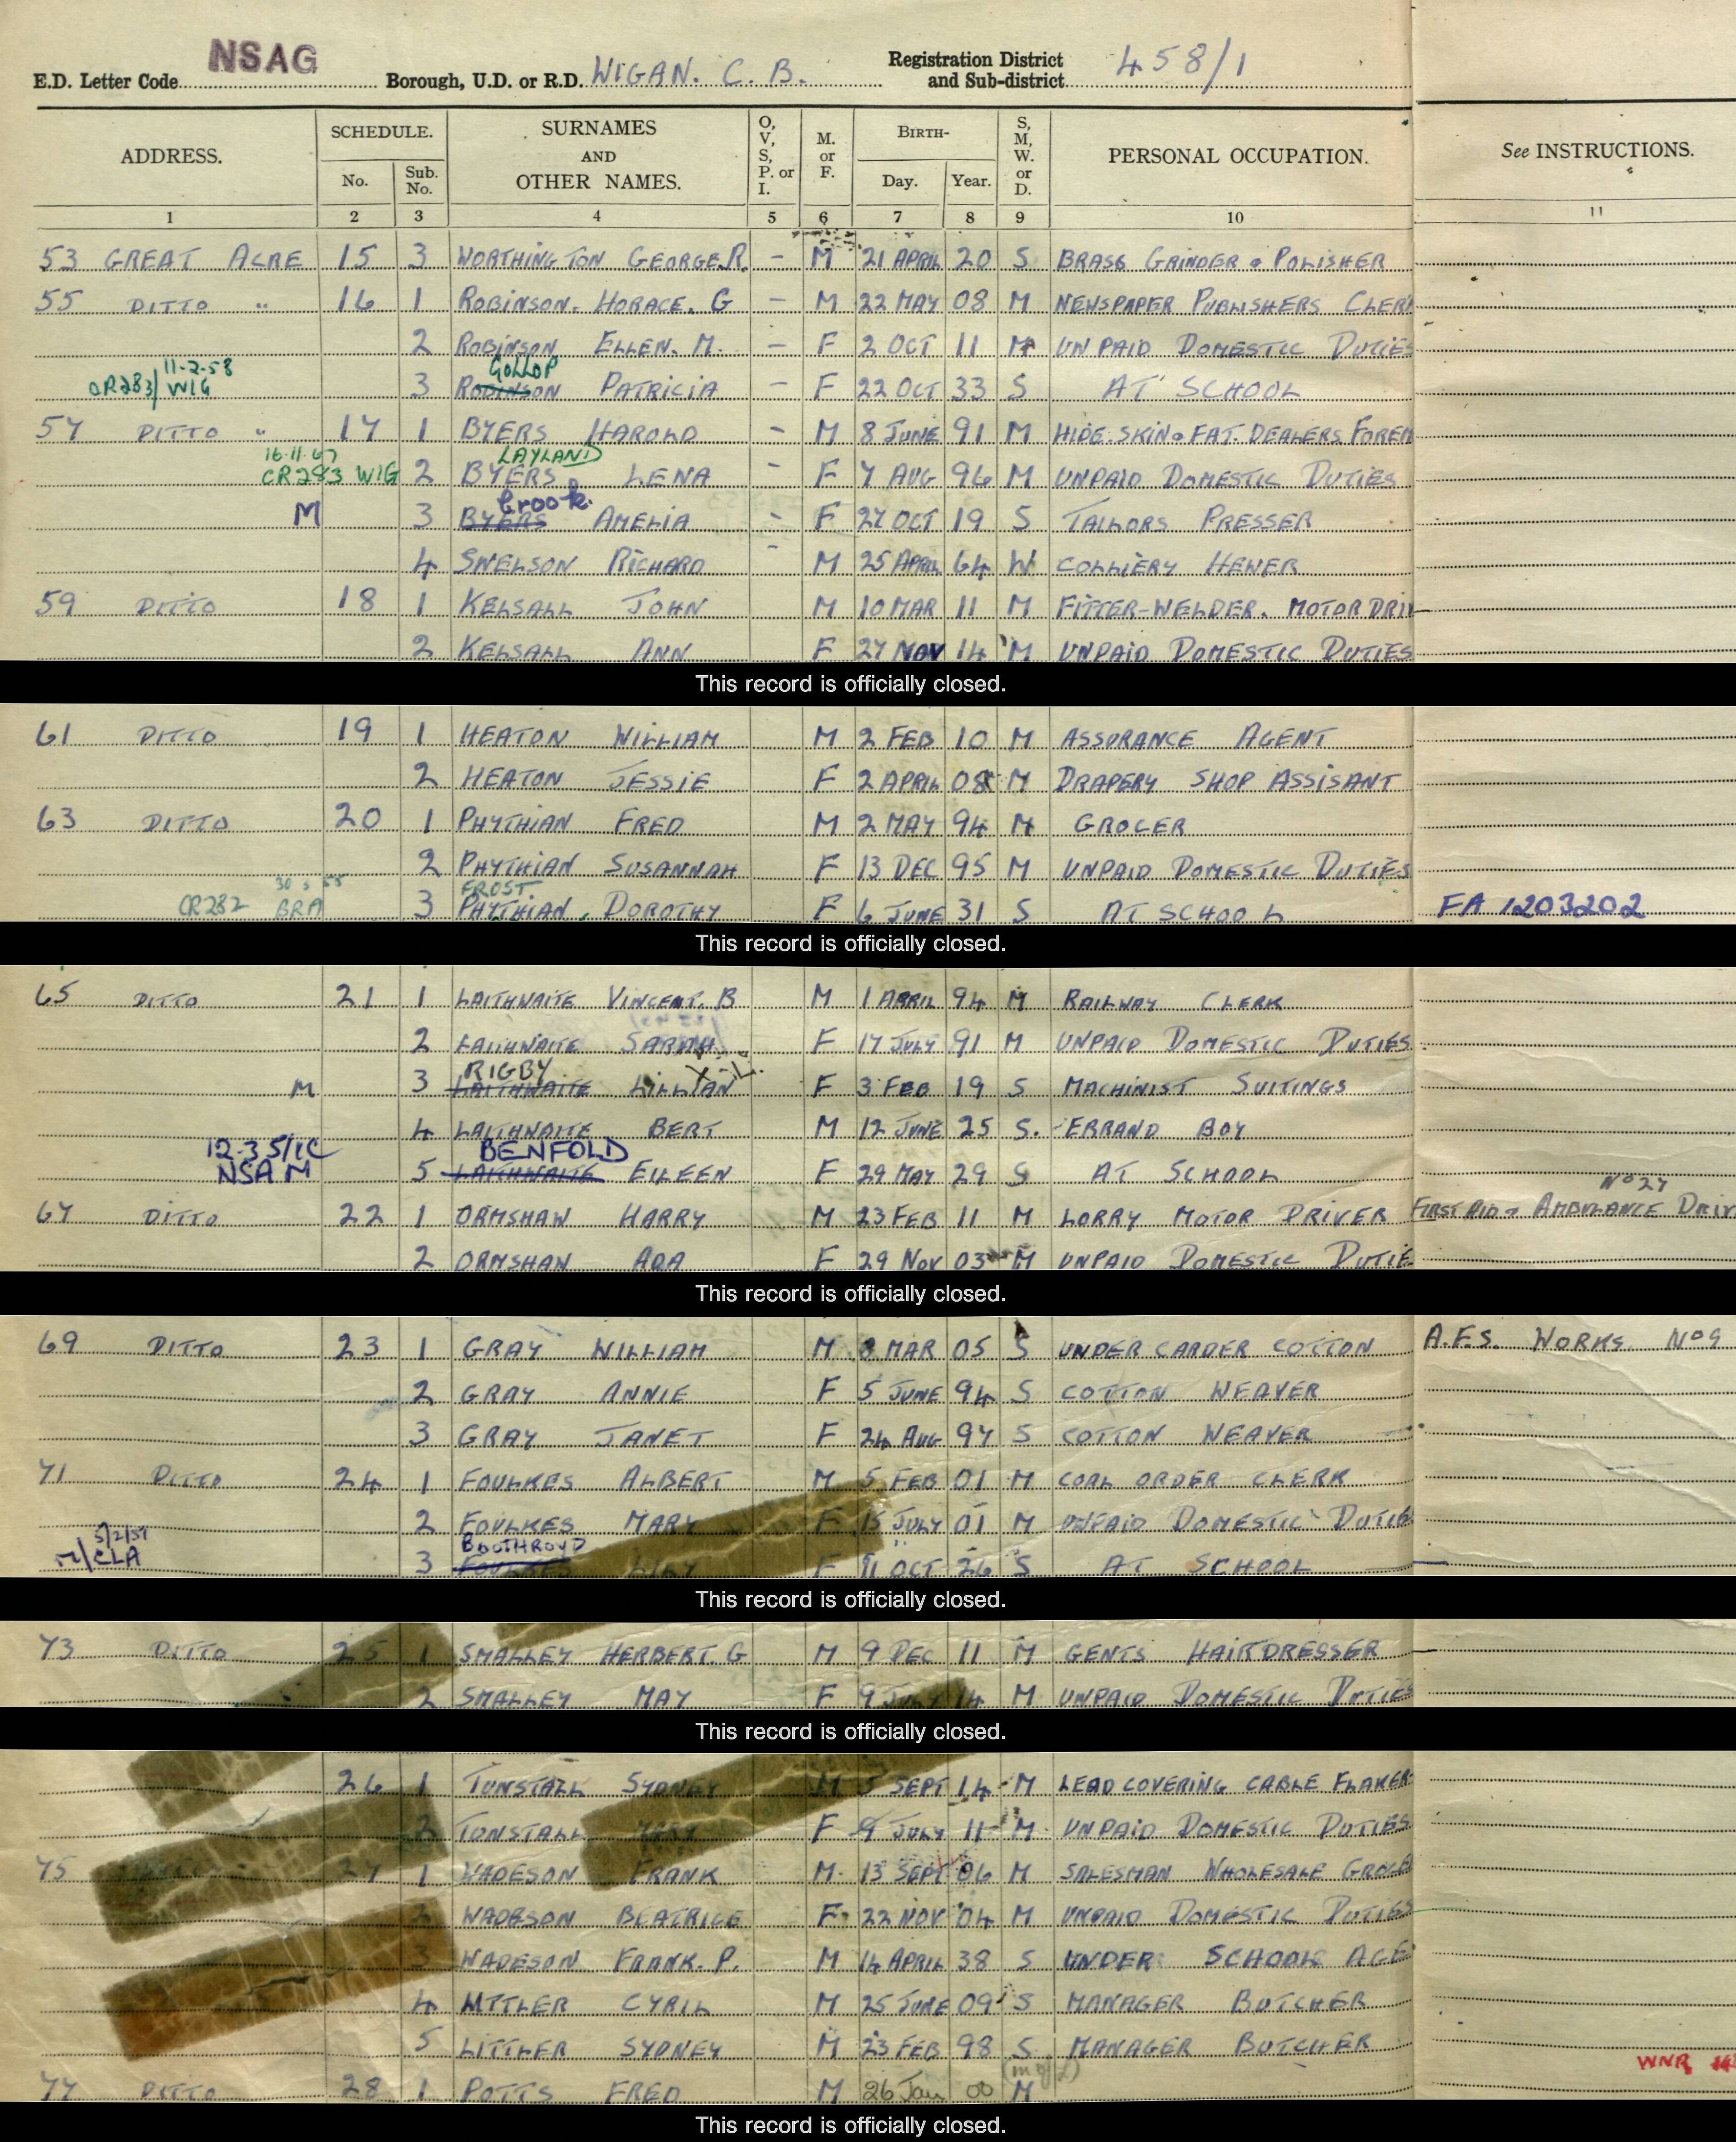 E.D. Letter Code NSAG Borough, U.D. or R.D. WIGAN. C. B. Registration District and Sub-district 458/1
ADDRESS. SCHEDULE. No. Sub. No. SURNAMES AND OTHER NAMES. O, V, S, P. or I. M. or F. BIRTH- Day. Year. S, M, W. or D. PERSONAL OCCUPATION. See INSTRUCTIONS.
1 2 3 4 5 6 7 8 9 10 11
53 GREAT ACRE 15 3 WORTHINGTON GEORGE.R. – M 21 APRIL 20 S BRASS GRINDER & POLISHER
55 DITTO " 16 1 ROBINSON. HORACE. G – M 22 MAY 08 M NEWSPAPER PUBLISHERS CLERK
2 ROBINSON ELLEN. M. – F 2 OCT 11 M UNPAID DOMESTIC DUTIES
11-2-58 GOLLOP
CR283/WIG 3 ROBINSON PATRICIA – F 22 OCT 33 S AT SCHOOL
57 DITTO " 17 1 BYERS HAROLD – M 8 JUNE 91 M HIDE. SKIN & FAT. DEALERS FOREM
16.11.67 LAYLAND
CR283 WIG 2 BYERS LENA – F 7 AUG 96 M UNPAID DOMESTIC DUTIES
Crook.
M 3 BYERS AMELIA – F 27 OCT 19 S TAILORS PRESSER
4 SNELSON RICHARD – M 25 APRIL 64 W COLLIERY HEWER
59 DITTO 18 1 KELSALL JOHN M 10 MAR 11 M FITTER-WELDER. MOTOR DRIV
2 KELSALL ANN F 27 NOV 14 M UNPAID DOMESTIC DUTIES
This record is officially closed.
61 DITTO 19 1 HEATON WILLIAM M 2 FEB 10 M ASSURANCE AGENT
2 HEATON JESSIE F 2 APRIL 08 M DRAPERY SHOP ASSISANT
63 DITTO 20 1 PHYTHIAN FRED M 2 MAY 94 M GROCER
2 PHYTHIAN SUSANNAH F 13 DEC 95 M UNPAID DOMESTIC DUTIES
30 3 55 FROST
CR282 BRA 3 PHYTHIAN DOROTHY F 6 JUNE 31 S AT SCHOOL FA 1203202
This record is officially closed.
65 DITTO 21 1 LAITHWAITE VINCENT. B M 1 APRIL 94 M RAILWAY CLERK
2 LAITHWAITE SARAH F 17 JULY 91 M UNPAID DOMESTIC DUTIES
RIGBY
M 3 LAITHWAITE LILLIAN F 3 FEB 19 S MACHINIST SUITINGS
4 LAITHWAITE BERT M 12 JUNE 25 S. ERRAND BOY
BENFOLD
NSA M 5 LAITHWAITE EILEEN F 29 MAY 29 S AT SCHOOL
No 27
67 DITTO 22 1 ORMSHAW HARRY M 23 FEB 11 M LORRY MOTOR DRIVER FIRST AID & AMBULANCE DRIV
2 ORMSHAW ADA F 29 NOV 03 M UNPAID DOMESTIC DUTIE
This record is officially closed.
69 DITTO 23 1 GRAY WILLIAM M MAR 05 S UNDER CARDER COTTON A.F.S. WORKS. No 9
2 GRAY ANNIE F 5 JUNE 94 S COTTON WEAVER
3 GRAY JANET F 24 AUG 97 S COTTON WEAVER
71 DITTO 24 1 FOULKES ALBERT M 5 FEB 01 M COAL ORDER CLERK
2 FOULKES MARY F 15 JULY 01 M UNPAID DOMESTIC DUTIE
5/2/51 BOOTHROYD
M/CLA 3 FOULKES F 11 OCT 26 S AT SCHOOL
This record is officially closed.
73 DITTO 25 1 SMALLEY HERBERT. G M 9 DEC 11 M GENTS HAIRDRESSER
2 SMALLEY MAY F 9 JULY 14 M UNPAID DOMESTIC DUTIES
This record is officially closed.
26 1 TUNSTALL SYDNEY M 5 SEPT 14 M LEAD COVERING CABLE FLAKER
2 TUNSTALL MARY F 9 JULY 11 M UNPAID DOMESTIC DUTIES
75 27 1 WADESON FRANK M 13 SEPT 06 M SALESMAN WHOLESALE GROCER
2 WADESON BEATRICE F 22 NOV 04 M UNPAID DOMESTIC DUTIES
3 WADESON FRANK. P. M 14 APRIL 38 S UNDER SCHOOL AGE
4 LITTLER CYRIL M 25 JUNE 09 S MANAGER BUTCHER
5 LITTLER SYDNEY M 23 FEB 98 S MANAGER BUTCHER
WNR
77 DITTO 28 1 POTTS FRED M 26 Jan 00 M
This record is officially closed.